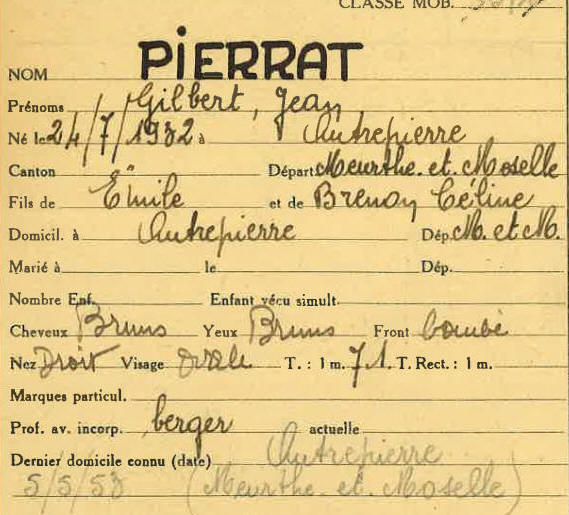 CLASSE MOB.
NOM PIERRAT
Prénoms Gilbert, Jean
Né le 24/7/1932 à Autrepierre
Canton " Départ Meurthe.et.Moselle
Fils de Emile et de Brenon Céline
Domicil. à Autrepierre Dép. M. et M.
Marié à le Dép.
Nombre Enf. Enfant vécu simult.
Cheveux Bruns Yeux Bruns Front bombé
Nez Droit Visage ovale T. : 1 m. 71. T. Rect. : 1 m.
Marques particul.
Prof. av. incorp. berger actuelle
Dernier domicile connu (date) Autrepierre
5/5/53 (Meurthe.et.Moselle)